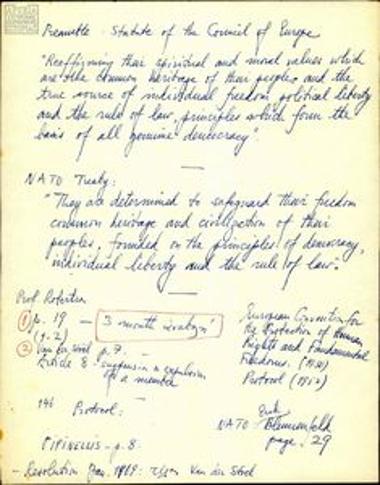 Preamble : Statute of the Council of Europe
"Reaffirming their spiritual and moral values which
are the common heritage of their peoples and the
true source of individual freedom, political liberty
and the rule of law, principles which form the
basis of all genuine democracy".
NATO Treaty:
"They are determined to safeguard their freedom
common heritage and civilization of their
peoples, founded on the principles of democracy,
individual liberty and the rule of law."
Prof. Robertson
① p. 19 — 3 month
(p. 2)
② Van der Stoel p. 7.
Article 8 : suspension & expulsion
of a member
European Convention for
the Protection of Human
Rights and Fundamental
Freedoms. (1950)
Protocol (1952)
Protocol:
Erik
NATO : Blumenfeld
page. 29
PIPINELLIS - p. 8.
- Resolution Jan. 1969: Van der Stoel